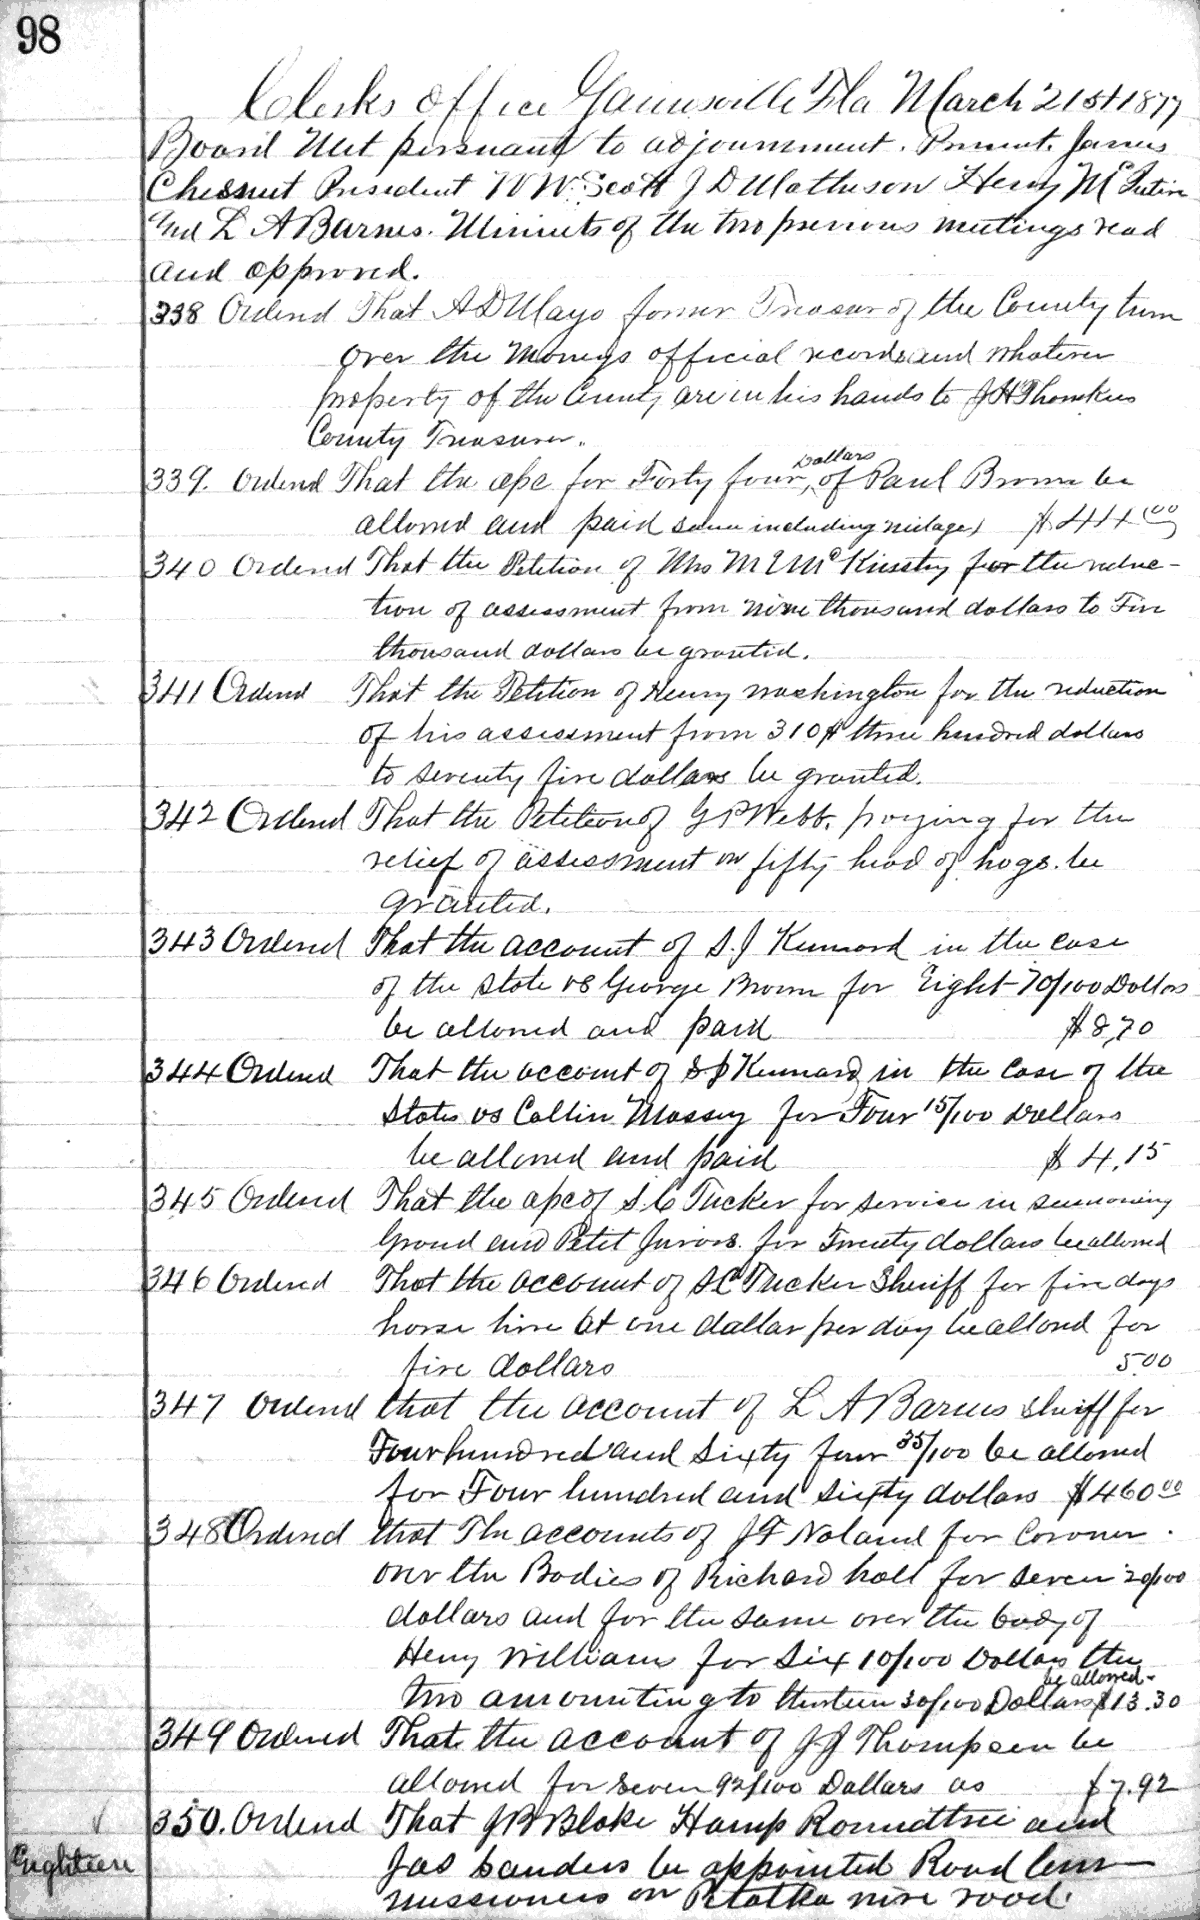 98
Clerks Office Gainesville Fla March 21st 1877
Board Met persuant to adjournment. Present. James
Chesnut President W W Scott J D Matheson Henry
and L A Barnes. Minuets of the two previous meetings read
and approved.
338 Ordered That A D Mayo former Treasurer of the County turn
over the Moneys official records and whatever
property of the County are in his hands to J H Thomkies
County Treasurer.
339. Ordered That the a/c for Forty four Dollars of Paul Brown be
allowed and paid same including milage $44.00
340 Ordered That the Petition of Mrs M E McKinstry for the reduc-
tion of assessment from nine thousand dollars to Five
thousand dollars be granted.
341 Ordered That the Petition of Henry Washington for the reduction
of his assessment from 310$ three hundred dollars
to seventy five dollars be granted.
342 Ordered That the Petition of G P Webb. praying for the
relief of assessment on fifty head of hogs. be
granted.
343 Ordered That the account of S. J Kennard in the case
of the State vs George Brown for Eight 70/100 Dollars
be allowed and paid $8,70
344 Ordered That the account of S J Kennard in the Case of the
State vs Collin Massey for Four 15/100 Dollars
be allowed and paid $4.15
345 Ordered That the a/c of S. C Tucker for service in
Grand and Petit Jurors. for Twenty dollars be allowed
346 Ordered That the account of S C Tucker Sheriff for five days
horse hire at one dollar per day be allowd for
five dollars 5.00
347 Ordered that the account of L A Barnes sheriff for
Four hundred and Sixty four 35/100 be allowed
for Four hundred and sixty dollars $460.00
348 Ordered that The accounts of J F Noland for Coroner.
over the Bodies of Richard hall for seven 20/100
dollars and for the same over the body of
Henry Williams for Six 10/100 Dollars the
two amounting to thirteen 30/100 Dollars be allowed- $13.30
349 Ordered That the account of J J Thompson be
allowed for Seven 92/100 Dollars as $7.92
350. Ordered That J B Blake Hamp Roundtree and
Eighteen Jas Sanders be appointed Road Com
missioners on Platka new road.